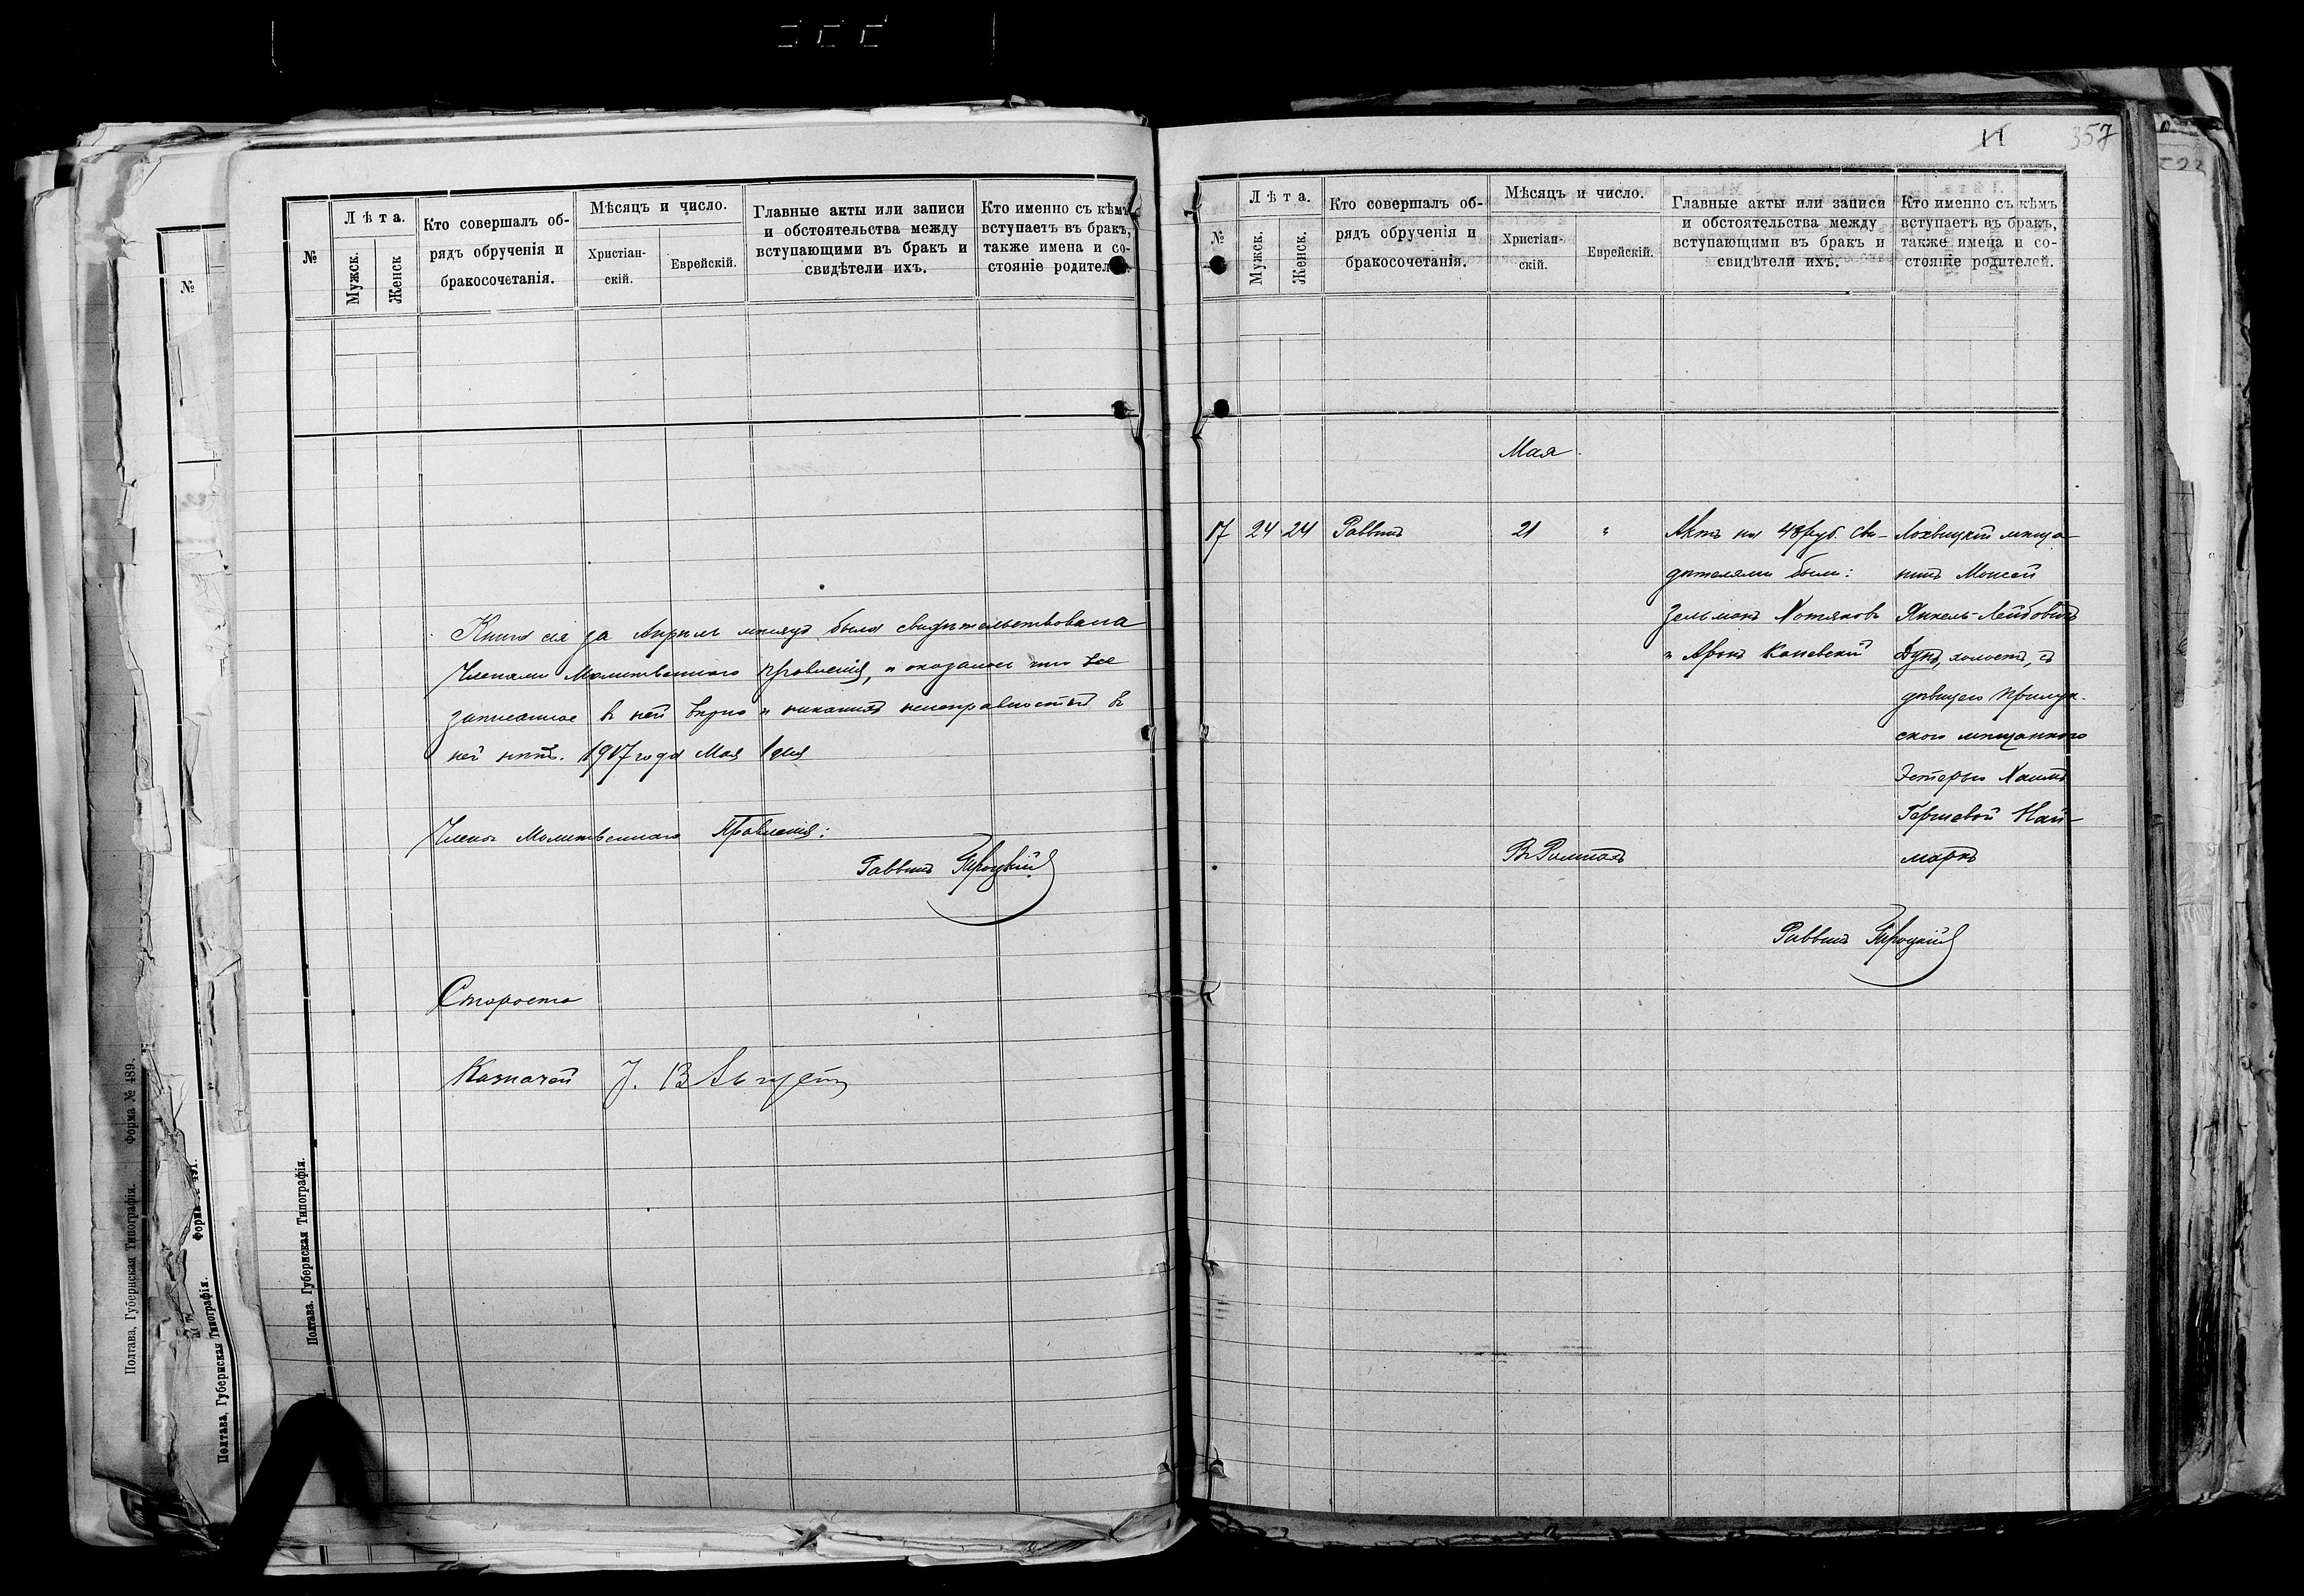 №
Лѣта.
Мужск.
Женск
Кто совершалъ об-
рядъ обрученія и
бракосочетанія.
Мѣсяцъ и число.
Христіан-
скій.
Еврейскій.
Главные акты или записи
и обстоятельства между
вступающими въ бракъ и
свидѣтели ихъ.
Кто именно съ кѣмъ
вступаетъ въ бракъ,
также имена и со-
стояніе родител
Книга сія за Апрѣль мѣсяцъ была свидѣтельствована
Членами Молитвеннаго Правленія, и оказалось что все
записанное въ ней вѣрно и никакихъ неисправностей въ
ней нѣтъ. 1907 года Мая 1 дня
Члены Молитвеннаго Правленія:
Раввинъ
Староста
Казначей
Полтава. Губернская Типографія.
№
Полтава, Губернская Типографія. Форма № 489.
Полтава, Губернская Типографія.
11
357
№
Лѣта.
Мужск.
Женск.
Кто совершалъ об-
рядъ обрученія и
бракосочетанія.
Мѣсяцъ и число.
Христіан-
скій.
Еврейскій.
Главные акты или записи
и обстоятельства между
вступающими въ бракъ и
свидѣтели ихъ.
Кто именно съ кѣмъ
вступаетъ въ бракъ,
также имена и со-
стояніе родителей.
Мая
17
24
24
Раввинъ
21
"
Актъ на 48 руб. Сви-
дѣтелями были:
Зельманъ Хотяковъ
и Аронъ Каневскій
Лохвицкій мѣща-
нинъ Моисей
Янкель-Лейбовичъ
холостъ, съ
дѣвицею Прилук-
ского мѣщанина
Эстерью Хаимъ
Гершевой Най-
маркъ
Въ Ромнахъ
Раввинъ